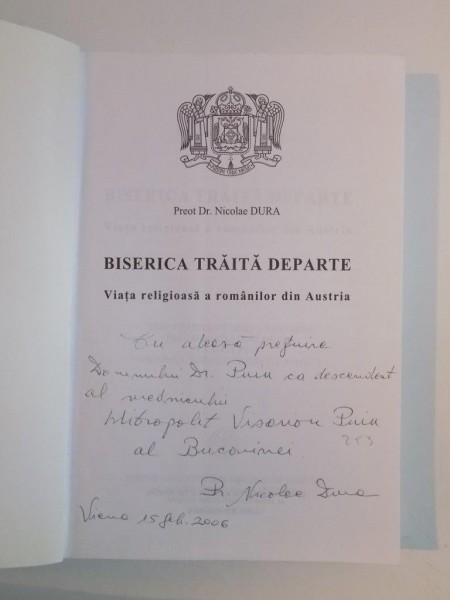 Preot Dr. Nicolae DURA
BISERICA TRĂITĂ DEPARTE
Viaţa religioasă a românilor din Austria
Cu aleasă prețuire
Domnului Dr. Puiu ca descendent
al vrednicului
Mitropolit Visarion Puiu
al Bucovinei.
253
Pr. Nicolae Dura
Viena 15 feb. 2006